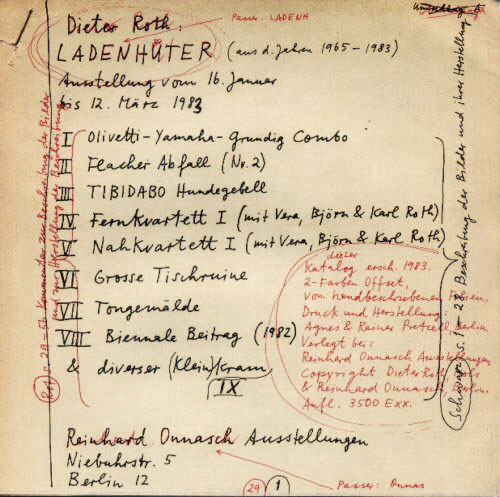 Passer: LADENH
Dieter Roth:
LADENHÜTER (aus d. Jahren 1965-1983)
Ausstellung vom 16. Januar
bis 12. März 1983
I Olivetti-Yamaha-Grundig Combo
II Flacher Abfall (Nr. 2)
III TIBIDABO Hundegebell
IV Fernkvartett I (mit Vera, Björn & Karl Roth)
V Nahkvartett I (mit Vera, Björn & Karl Roth)
VI Grosse Tischruine
VII Tongemälde
VIII Biennale Beitrag (1982)
& diverser (Klein)Kram
IX
dieser
Katalog ersch. 1983.
2-Farben Offset,
von handbeschriebenen Folien.
Druck und Herstellung:
Agnes & Rainer Pretzell, Berlin
Verlegt bei:
Reinhard Onnasch Ausstellungen
Copyright Dieter Roth
& Reinhard Onnasch, Berlin.
Aufl. 3500 Exx.
Reinhard Onnasch Ausstellungen
Niebuhrstr. 5
Berlin 12
Passer: Onnas
29 1
Rot s. 29-56 Kommentar zur Beschreibung der Bilder
und zur Herstellung der Beschreibung
Schwarz s. 1-28 Beschreibung der Bilder und ihrer Herstellung